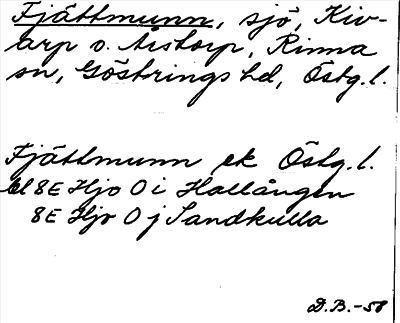 Fjättmunn, sjö, Kiv-
arp o. Åstorp, Rinna
sn, Göstrings hd, Östg. l.
Fjättmunn ek Östg. l.
bl 8E Hjo 0 i Hallången
8E Hjo 0 j Sandkulla
D.B. -58